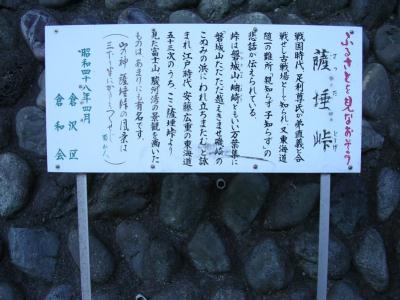 ふるさとを見なおそう
薩埵峠
戦国時代、足利尊氏が弟直義と合
戦せし古戦場として知られ、又東海道
随一の難所「親知らず子知らず」の
悲話が伝えられている。
峠は磐城山・岫崎ともいい万葉集に
磐城山ただただ越えきませ磯崎の
こぬみの浜にわれ立ちまたむ」と詠
まれ、江戸時代、安藤広重の東海道
五十三次のうち、ここ薩埵峠より
見た富士山、駿河湾の景観を画いた
ものはあまりにも有名です。
山の神薩埵峠の風景は
三下り半に
昭和四十八年四月
倉沢区
倉和会